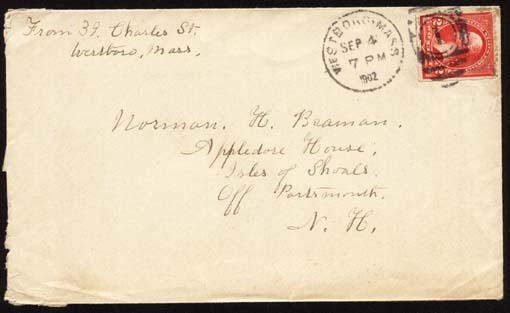 From 39 Charles St.
Westboro, Mass.
WESTBORO, MASS.
SEP 4
7 PM
1902
Norman. H. Beaman.
Appledore House,
Isles of Shoals.
Off Portsmouth.
N. H.